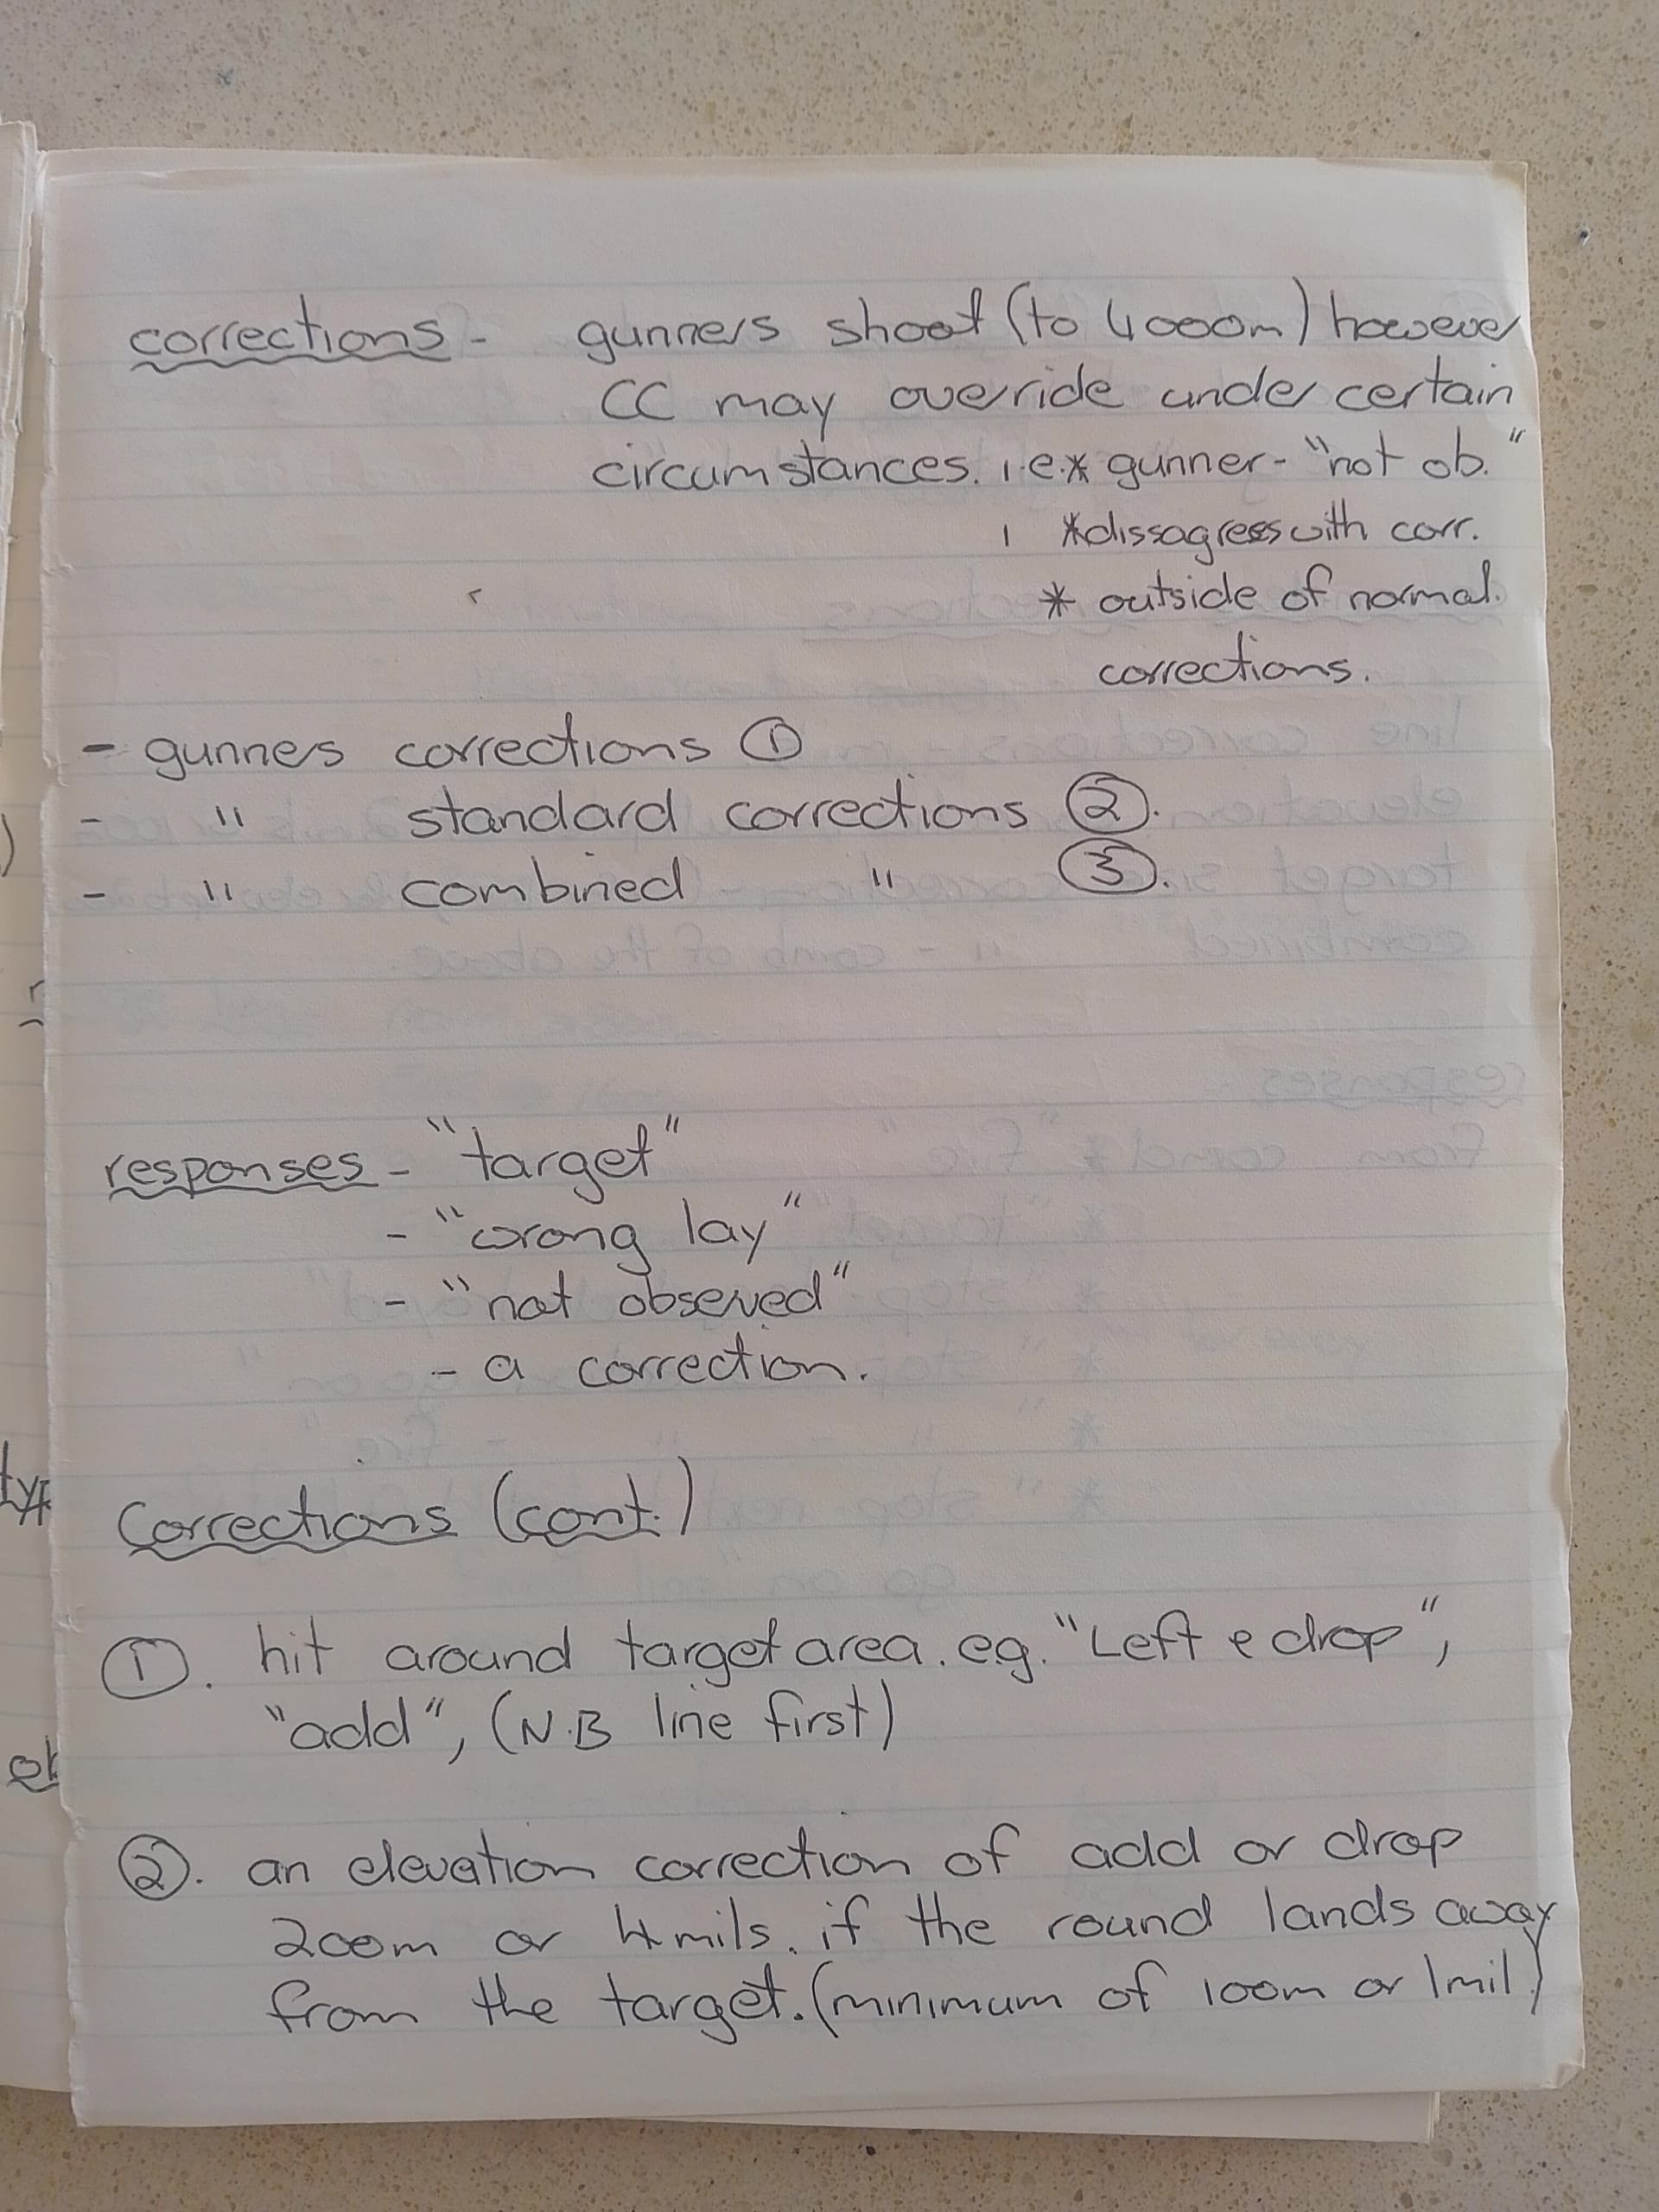 corrections - gunners shoot (to 4000m) however
CC may override under certain
circumstances. i.e.* gunner - "not ob."
*dissagrees with corr.
* outside of normal.
corrections.
- gunners corrections ①
- " standard corrections ②.
- " combined " ③.
responses - "target"
- "wrong lay"
- "not observed"
- a correction.
Corrections (cont.)
①. hit around target area. e.g. "Left e drop",
"add", (N.B line first)
②. an elevation correction of add or drop
200m or 4mils. if the round lands away
from the target. (minimum of 100m or 1mil.)